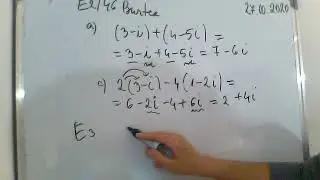 E2/46 Burtea 27.10.2020
a) (3-i)+(4-5i)=
= 3-i+4-5i = 7-6i
c) 2(3-i)-4(1-2i)=
= 6-2i-4+6i = 2+4i
E3